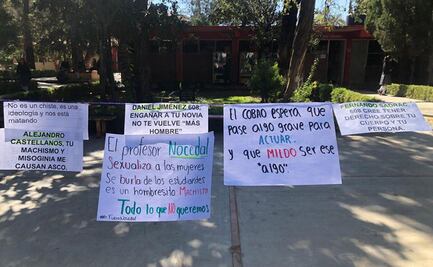 No es un chiste, es una
ideología y nos está
matando
ALEJANDRO
CASTELLANOS, TU
MACHISMO Y
MISOGINIA ME
CAUSAN ASCO.
DANIEL JIMÉNEZ 608,
ENGAÑAR A TU NOVIA
NO TE VUELVE “MÁS
HOMBRE”
El profesor Noccdal
Sexualiza a las mujeres
Se burla de los estudiantes
es un hombresito Machista
Todo lo que NO queremos
El COBAQ espera que
pase algo grave para
ACTUAR.
y que MIEDO ser ese
"algo".
FERNANDO SADRAC,
608 CREE TENER
DERECHO SOBRE TU
CUERPO Y TU
PERSONA.